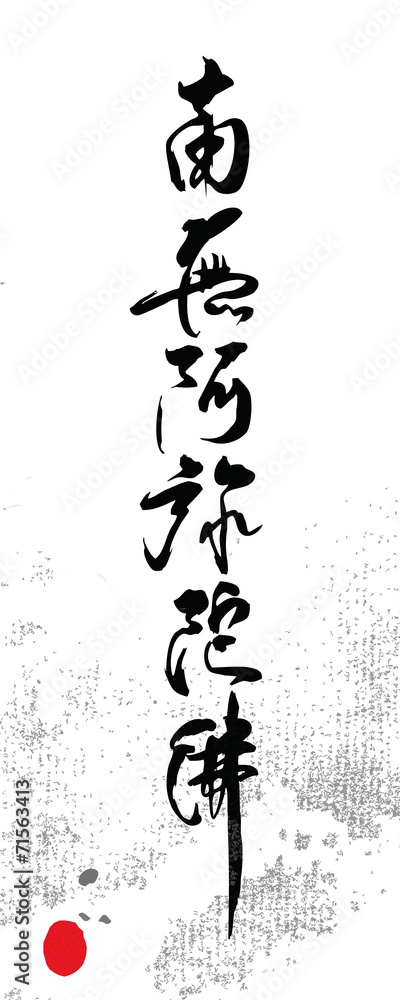 南無阿弥陀佛
Adobe Stock | #71563413